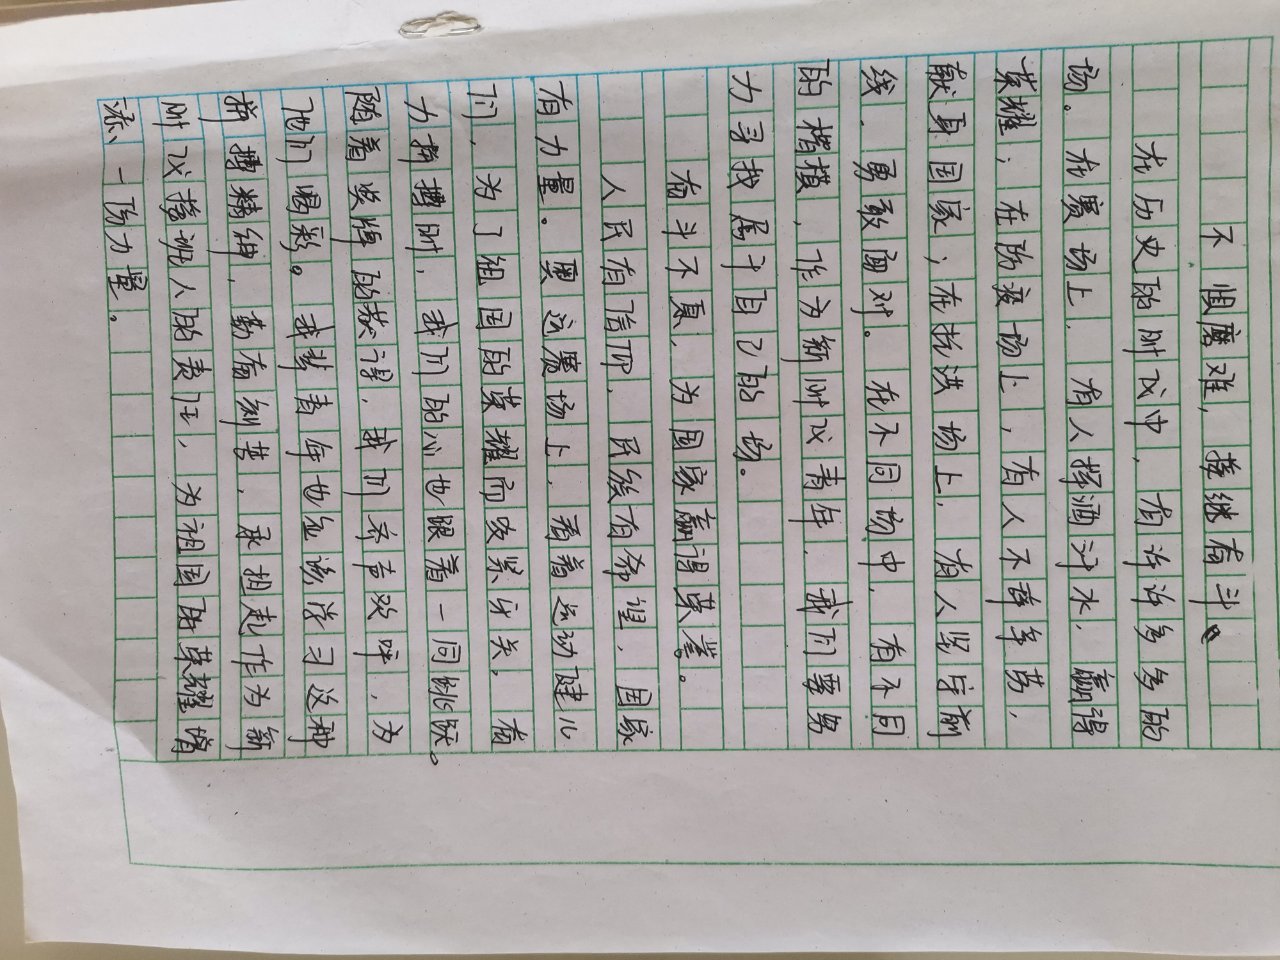 不惧磨难，接继奋斗
在历史的时代中，有许许多多的
场。在赛场上，有人挥洒汗水，赢得
荣耀；在防疫场上，有人不辞辛劳，
献身国家；在抗洪场上，有人坚守前
线，勇敢面对。在不同场中，有不同
的楷模，作为新时代青年，我们要努
力寻找属于自己的场。
奋斗不息，为国家赢得荣誉。
人民有信仰，民族有希望，国家
有力量。奥运赛场上，看着运动健儿
们，为了祖国的荣耀而咬紧牙关，奋
力拼搏时，我们的心也跟着一同跳跃。
随着奖牌的获得，我们齐声欢呼，为
他们喝彩。我辈青年也应该学习这种
拼搏精神，勤奋刻苦，承担起作为新
时代接班人的责任，为祖国的荣耀增
添一份力量。